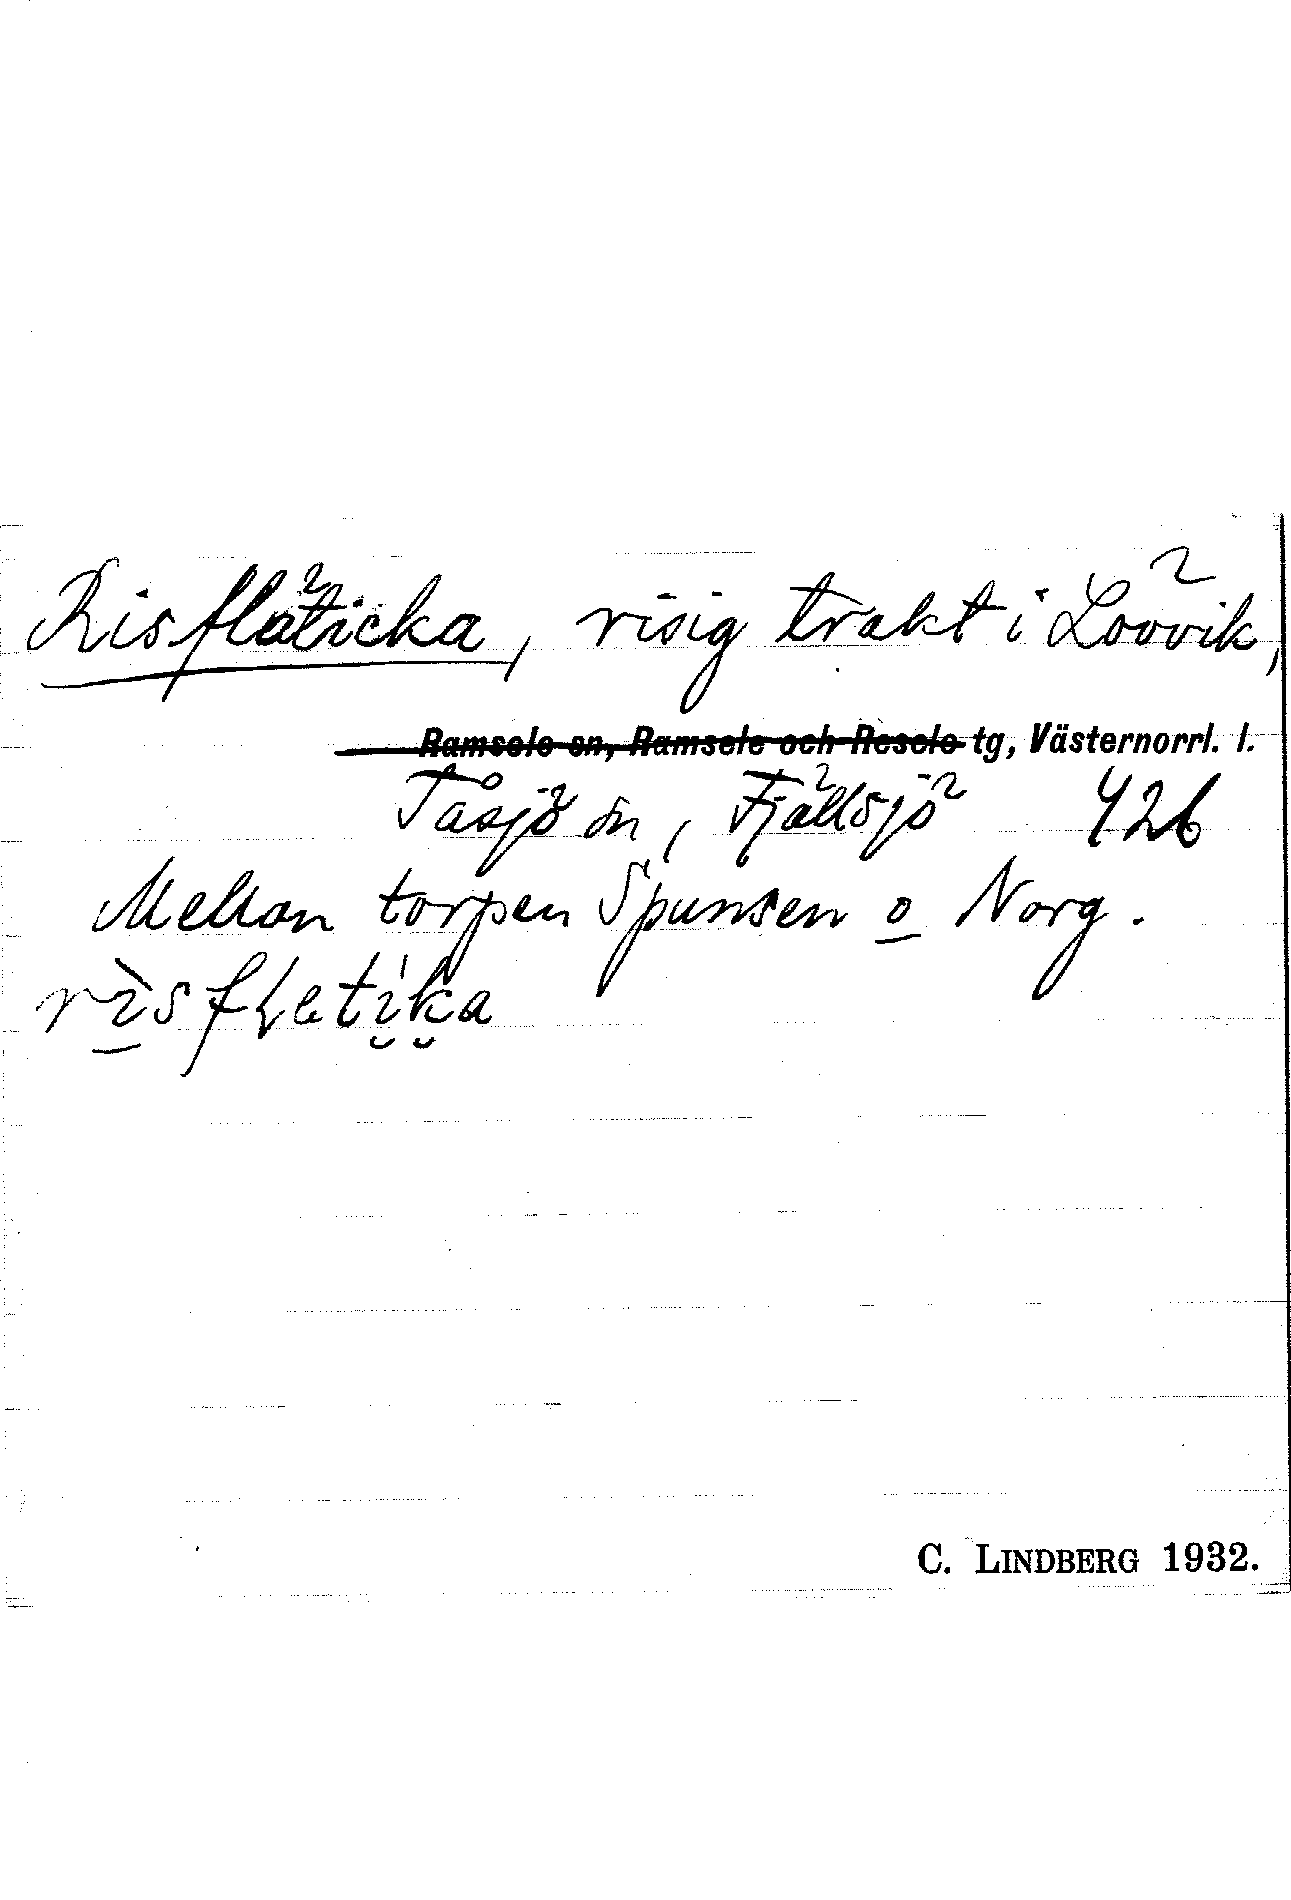 Risfläticka, risig trakt i Lövvik,
Ramsele sn, Ramsele och Resele tg, Västernorrl. l.
Tåsjö sn, Fjällsjö 426
Mellan torpen Spunsen o Norg.
rìsfletika
C. LINDBERG 1932.